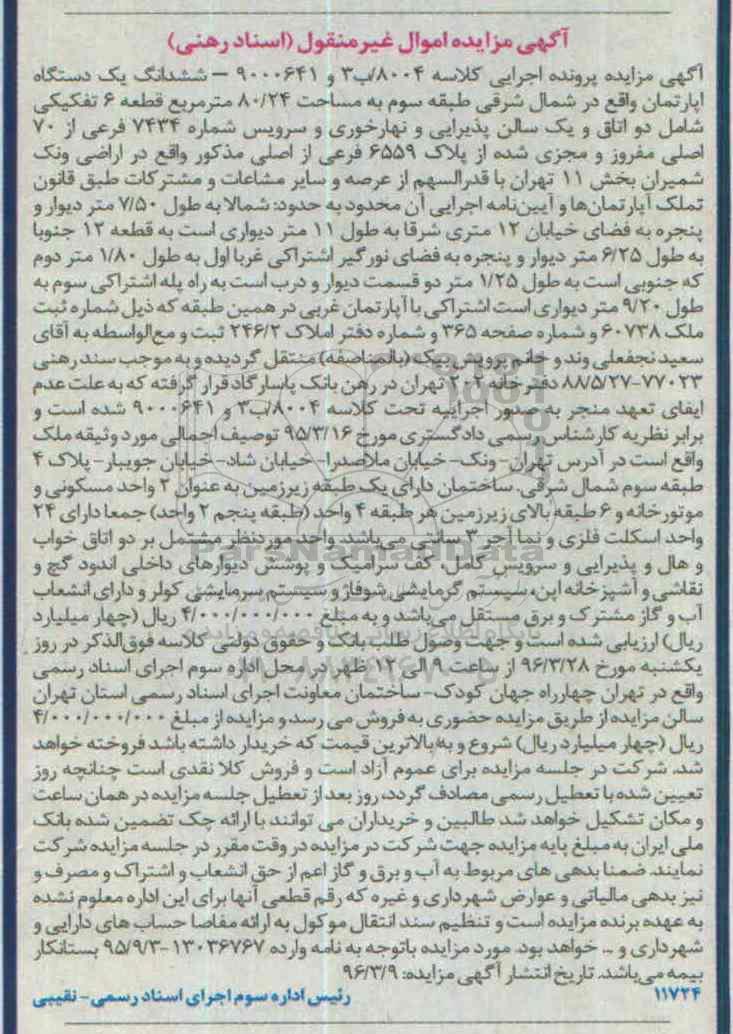 آگهی مزایده اموال غیرمنقول (اسناد رهنی)
آگهی مزایده پرونده اجرایی کلاسه ۸۰۰۴/ب۳ و ۹۰۰۰۶۴۱ – ششدانگ یک دستگاه
آپارتمان واقع در شمال شرقی طبقه سوم به مساحت ۸۰/۲۴ مترمربع قطعه ۶ تفکیکی
شامل دو اتاق و یک سالن پذیرایی و نهارخوری و سرویس شماره ۷۴۳۴ فرعی از ۷۰
اصلی مفروز و مجزی شده از پلاک ۶۵۵۹ فرعی از اصلی مذکور واقع در اراضی ونک
شمیران بخش ۱۱ تهران با قدرالسهم از عرصه و سایر مشاعات و مشترکات طبق قانون
تملک آپارتمان‌ها و آیین‌نامه اجرایی آن محدود به حدود: شمالا به طول ۷/۵۰ متر دیوار و
پنجره به فضای خیابان ۱۲ متری شرقا به طول ۱۱ متر دیواری است به قطعه ۱۲ جنوبا
به طول ۶/۲۵ متر دیوار و پنجره به فضای نورگیر اشتراکی غربا اول به طول ۱/۸۰ متر دوم
که جنوبی است به طول ۱/۲۵ متر دو قسمت دیوار و درب است به راه پله اشتراکی سوم به
طول ۹/۲۰ متر دیواری است اشتراکی با آپارتمان غربی در همین طبقه که ذیل شماره ثبت
ملک ۶۰۷۳۸ و شماره صفحه ۳۶۵ و شماره دفتر املاک ۲۴۶/۲ ثبت و مع‌الواسطه به آقای
سعید نجفعلی وند و خانم پرویش بیک (بالمناصفه) منتقل گردیده و به موجب سند رهنی
۷۷۰۲۳-۸۸/۵/۲۷ دفترخانه ۲۰۲ تهران در رهن بانک پاسارگاد قرار گرفته که به علت عدم
ایفای تعهد منجر به صدور اجراییه تحت کلاسه ۸۰۰۴/ب۳ و ۹۰۰۰۶۴۱ شده است و
برابر نظریه کارشناس رسمی دادگستری مورخ ۹۵/۳/۱۶ توصیف اجمالی مورد وثیقه ملک
واقع است در آدرس تهران- ونک- خیابان ملاصدرا- خیابان شاد- خیابان جویبار- پلاک ۴
طبقه سوم شمال شرقی. ساختمان دارای یک طبقه زیرزمین به عنوان ۲ واحد مسکونی و
موتورخانه و ۶ طبقه بالای زیرزمین هر طبقه ۴ واحد (طبقه پنجم ۲ واحد) جمعا دارای ۲۴
واحد اسکلت فلزی و نما آجر ۳ سانتی می‌باشد. واحد موردنظر مشتمل بر دو اتاق خواب
و هال و پذیرایی و سرویس کامل، کف سرامیک و پوشش دیوارهای داخلی اندود گچ و
نقاشی و آشپزخانه اپن، سیستم گرمایشی شوفاژ و سیستم سرمایشی کولر و دارای انشعاب
آب و گاز مشترک و برق مستقل می‌باشد و به مبلغ ۴/۰۰۰/۰۰۰/۰۰۰ ریال (چهار میلیارد
ریال) ارزیابی شده است و جهت وصول طلب بانک و حقوق دولتی کلاسه فوق‌الذکر در روز
یکشنبه مورخ ۹۶/۳/۲۸ از ساعت ۹ الی ۱۲ ظهر در محل اداره سوم اجرای اسناد رسمی
واقع در تهران چهارراه جهان کودک- ساختمان معاونت اجرای اسناد رسمی استان تهران
سالن مزایده از طریق مزایده حضوری به فروش می رسد و مزایده از مبلغ ۴/۰۰۰/۰۰۰/۰۰۰
ریال (چهار میلیارد ریال) شروع و به بالاترین قیمت که خریدار داشته باشد فروخته خواهد
شد. شرکت در جلسه مزایده برای عموم آزاد است و فروش کلا نقدی است چنانچه روز
تعیین شده با تعطیل رسمی مصادف گردد، روز بعد از تعطیل جلسه مزایده در همان ساعت
و مکان تشکیل خواهد شد. طالبین و خریداران می توانند با ارائه چک تضمین شده بانک
ملی ایران به مبلغ پایه مزایده جهت شرکت در مزایده در وقت مقرر در جلسه مزایده شرکت
نمایند. ضمنا بدهی های مربوط به آب و برق و گاز اعم از حق انشعاب و اشتراک و مصرف و
نیز بدهی مالیاتی و عوارض شهرداری و غیره که رقم قطعی آنها برای این اداره معلوم نشده
به عهده برنده مزایده است و تنظیم سند انتقال موکول به ارائه مفاصا حساب های دارایی و
شهرداری و ... خواهد بود. مورد مزایده باتوجه به نامه وارده ۱۳۰۳۶۷۶۷-۹۵/۹/۳ بستانکار
بیمه می‌باشد. تاریخ انتشار آگهی مزایده: ۹۶/۳/۹
۱۱۷۲۴ رئیس اداره سوم اجرای اسناد رسمی- نقیبی
ParsNamadData